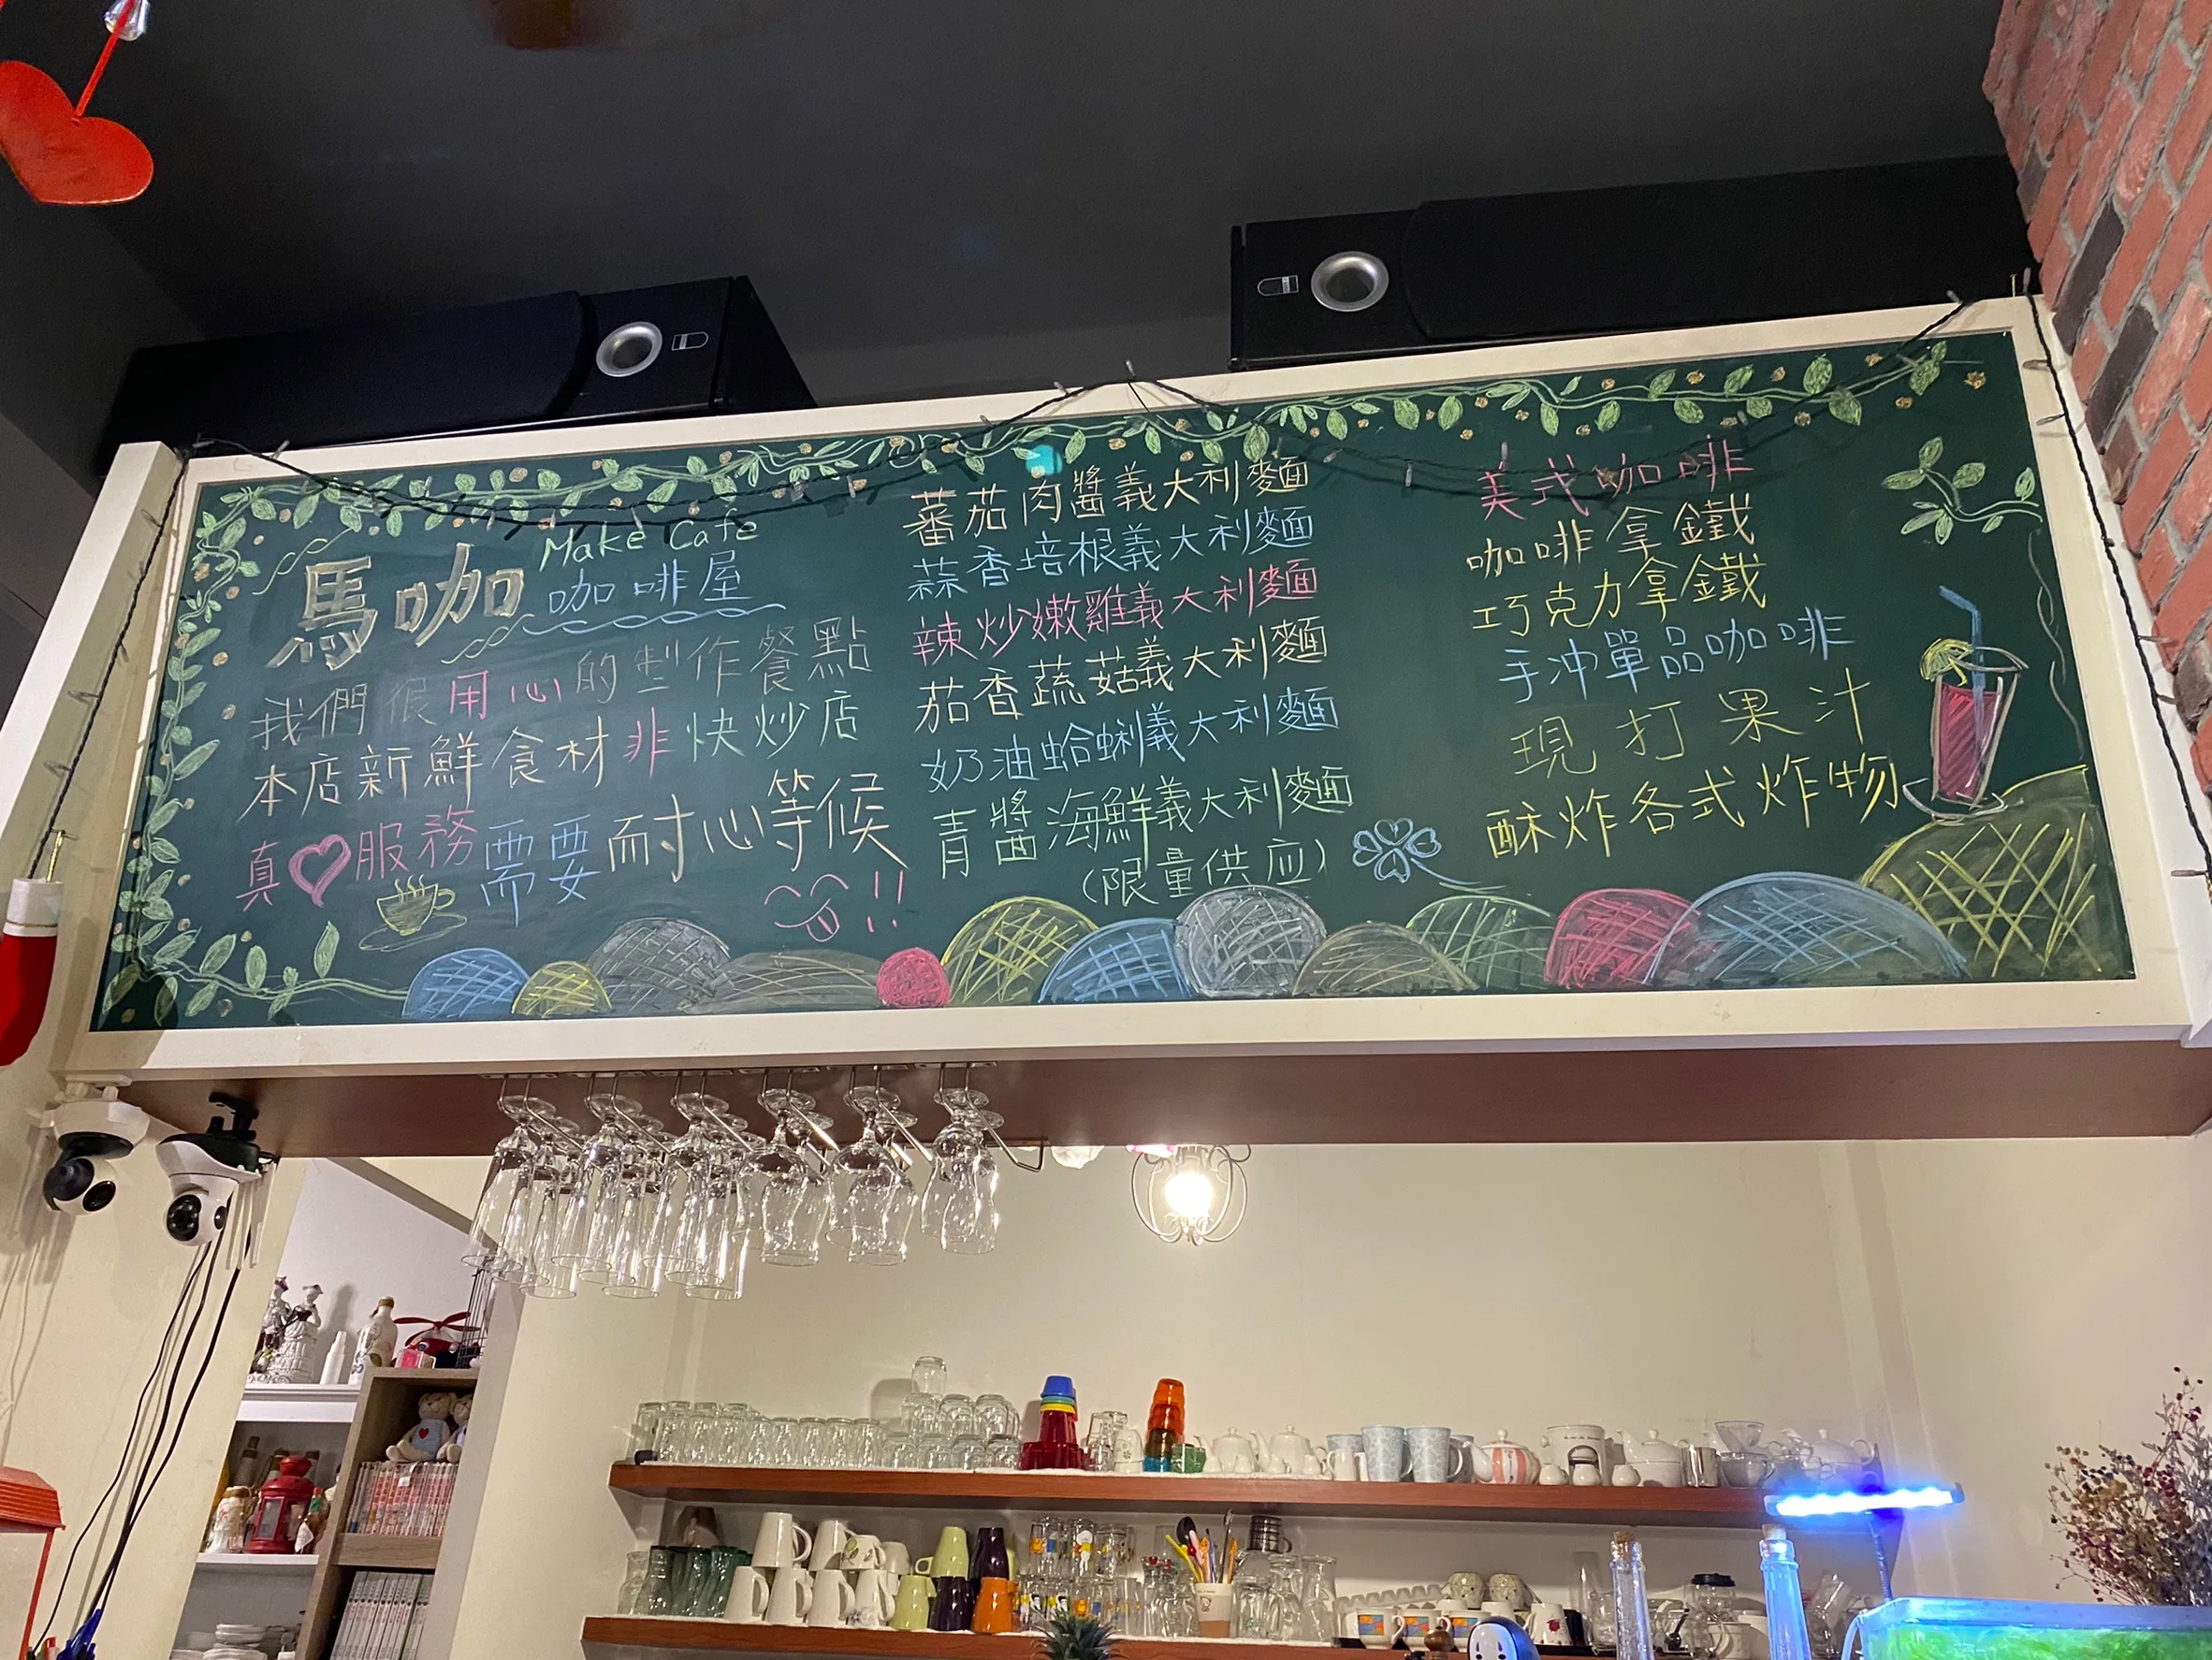 馬咖
Make Cafe
咖啡屋
我們很用心的製作餐點
本店新鮮食材非快炒店
真♡服務需要耐心等候
!!
蕃茄肉醬義大利麵
蒜香培根義大利麵
辣炒嫩雞義大利麵
茄香蔬菇義大利麵
奶油蛤蜊義大利麵
青醬海鮮義大利麵
(限量供应)
美式咖啡
咖啡拿鐵
巧克力拿鐵
手沖單品咖啡
現打果汁
酥炸各式炸物